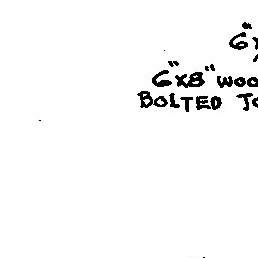 6"x
6"x8" WOO
BOLTED TO